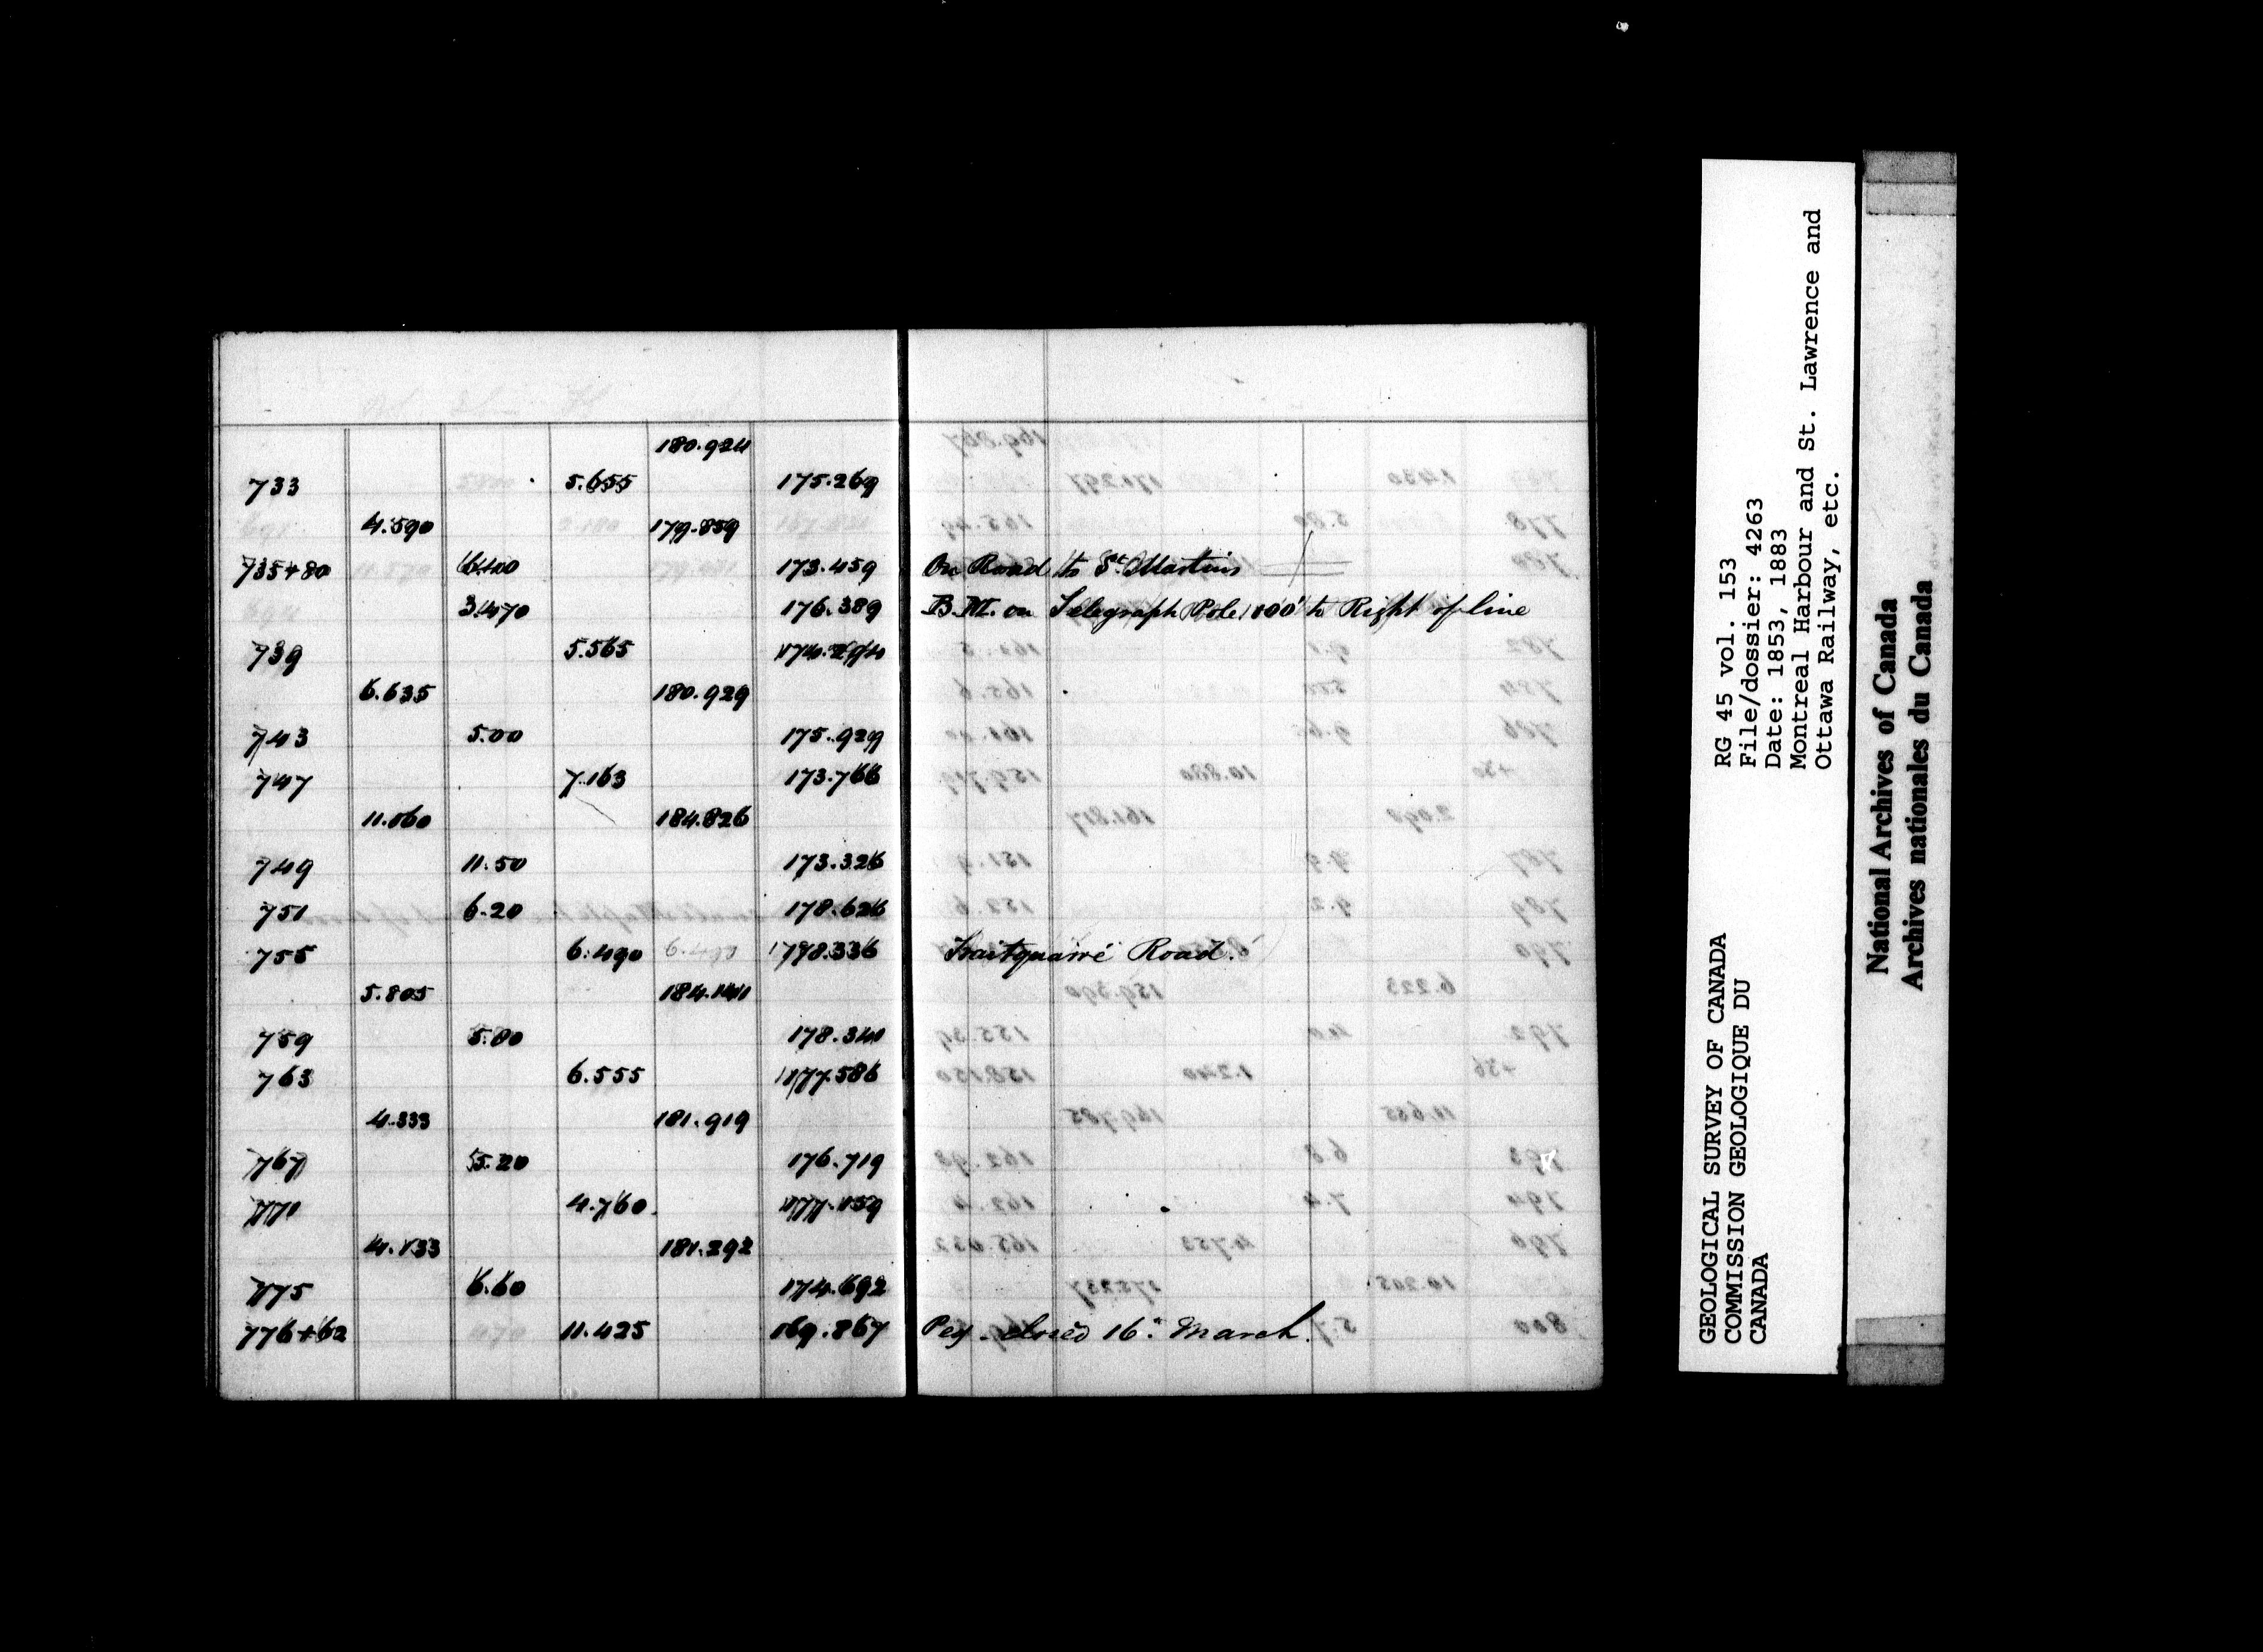 180.924
733 5.655 175.269
4.590 179.859
735+80 6.400 173.459 On Road to St. Martins
3.470 176.389 B.M. on Telegraph Pole 100' to Right of line
739 5.565 174.294
6.635 180.929
743 5.00 175.929
747 7.163 173.766
11.060 184.826
749 11.50 173.326
751 6.20 178.626
755 6.490 178.336 Road.
5.805 184.141
759 5.80 178.340
763 6.555 177.586
4.333 181.919
767 5.20 176.719
771 4.760 177.159
4.133 181.292
775 6.60 174.692
776+62 11.425 169.867 Peg closed 16" March.
GEOLOGICAL SURVEY OF CANADA
COMMISSION GEOLOGIQUE DU
CANADA
RG 45 vol. 153
File/dossier: 4263
Date: 1853, 1883
Montreal Harbour and St. Lawrence and
Ottawa Railway, etc.
National Archives of Canada
Archives nationales du Canada